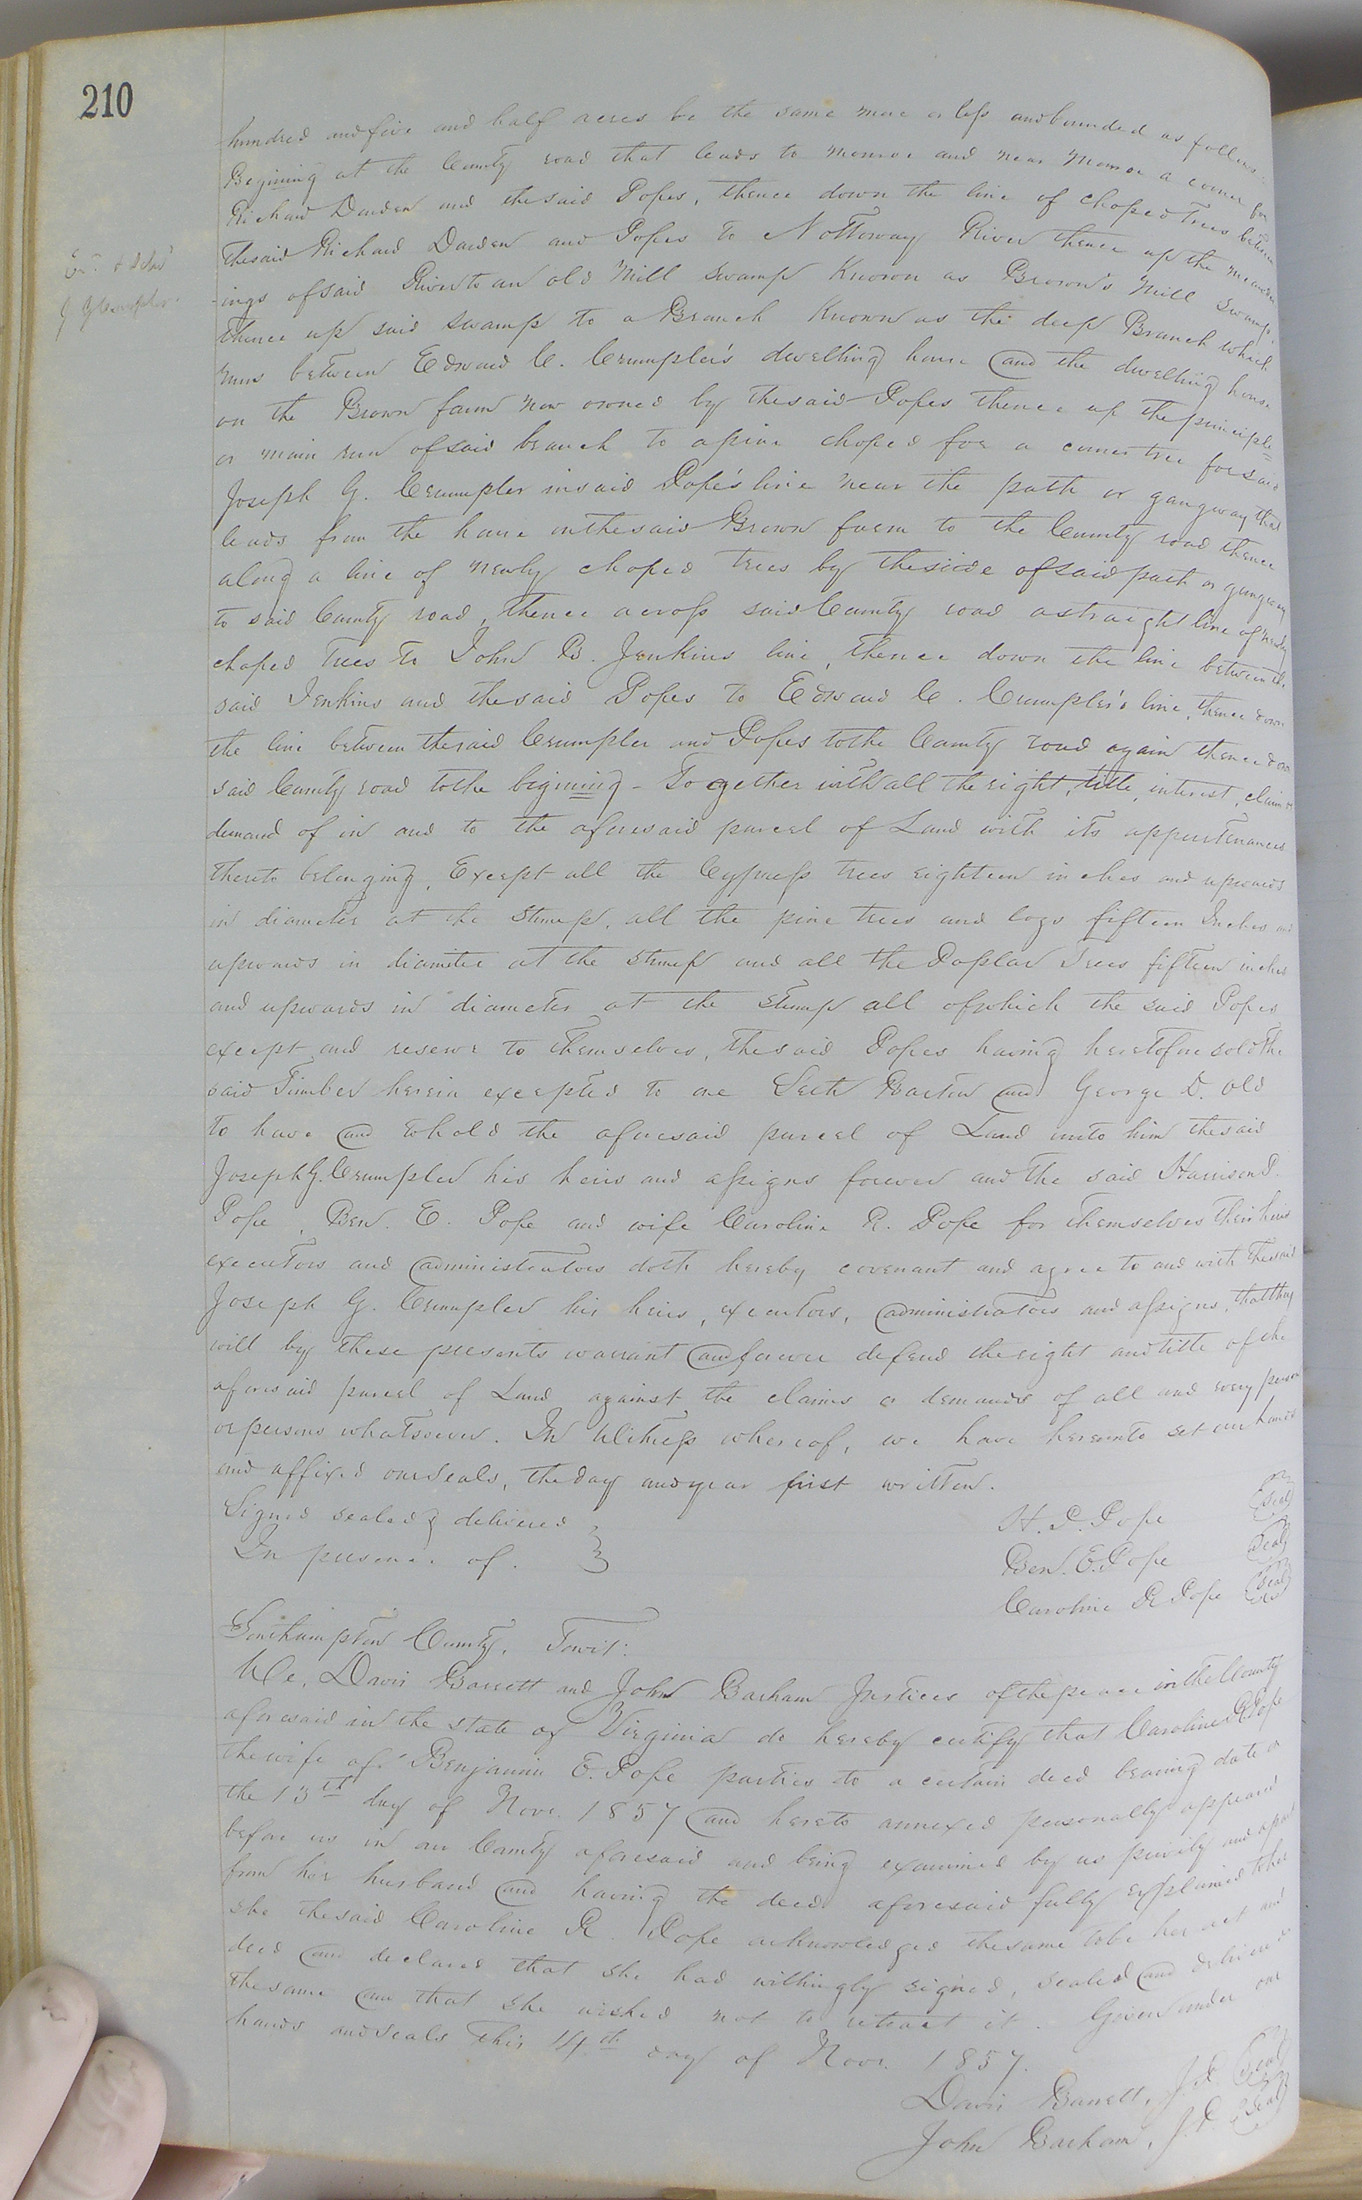 210
hundred and five and half acres be the same more or less and bounded as follows:
Begining at the County road that leads to Monroe and near Monroe a corner for
Richard Darden and the said Popes, thence down the line of choped trees between
the said Richard Darden and Popes to Nottoway River thence up the meander
-ings of said River to an old Mill swamp Known as Brown's Mill Swamp,
thence up said swamp to a Branch Known as the deep Branch which
runs between Edward C. Crumpler's dwelling house and the dwelling house
on the Brown farm now owned by the said Popes thence up the principle
or main run of said branch to a pine choped for a corner tree for said
Joseph G. Crumpler in said Pope's line near the path or gangway that
leads from the house on the said Brown farm to the County road thence
along a line of newly choped trees by the side of said path or gangway
to said County road, thence across said County road a straight line of newly
choped trees to John B. Jenkins line, thence down the line between the
said Jenkins and the said Popes to Edward C. Crumpler's line, thence down
the line between the said Crumpler and Popes to the County road again thence down
said County road to the begining - Together with all the right, title, interest, claim or
demand of in and to the aforesaid parcel of Land with its appurtenances
thereto belonging, Except all the Cypress trees eighteen inches and upwards
in diameter at the stump, all the pine trees and logs fifteen Inches and
upwards in diamiter at the stump and all the Poplar Trees fifteen inches
and upwards in diameter at the stump all of which the said Popes
except and reserve to themselves, the said Popes having heretofore sold the
said Timber herein excepted to one Seth Barton and George D. Old
to have and to hold the aforesaid parcel of Land unto him the said
Joseph G. Crumpler his heirs and assigns forever and the said Harrison P.
Pope, Ben. E. Pope and wife Caroline R. Pope for themselves their heirs
executors and administrators doth hereby covenant and agree to and with the said
Joseph G. Crumpler his heirs, executors, administrators and assigns, that they
will by these presents warrant and forever defend the right and title of the
aforesaid parcel of Land against the claims or demands of all and every person
or persons whatsoever. In Witness whereof, we have hereunto set our hands
and affixed our seals, the day and year first written.
Signed sealed & delivered H. P. Pope Seal
In presence of. Ben. E. Pope Seal
Caroline R Pope Seal
Southampton County, Towit:
We, Davis Barrett and John Barham Justices of the peace in the County
aforesaid in the state of Virginia do hereby certify that Caroline R Pope
the wife of Benjamin E. Pope parties to a certain deed bearing date on
the 13th day of Novr. 1857 and hereto annexed personally appeared
before us in our County aforesaid and being examined by us privily and apart
from her husband and having the deed aforesaid fully explained to her
she the said Caroline R. Pope acknowledged the same to be her act and
deed and declared that she had willingly signed, sealed and delivered
the same and that she wished not to retract it. Given under our
hands and seals this 14th day of Novr. 1857.
Davis Barrett, J.P. Seal
John Barham, J.P. Seal